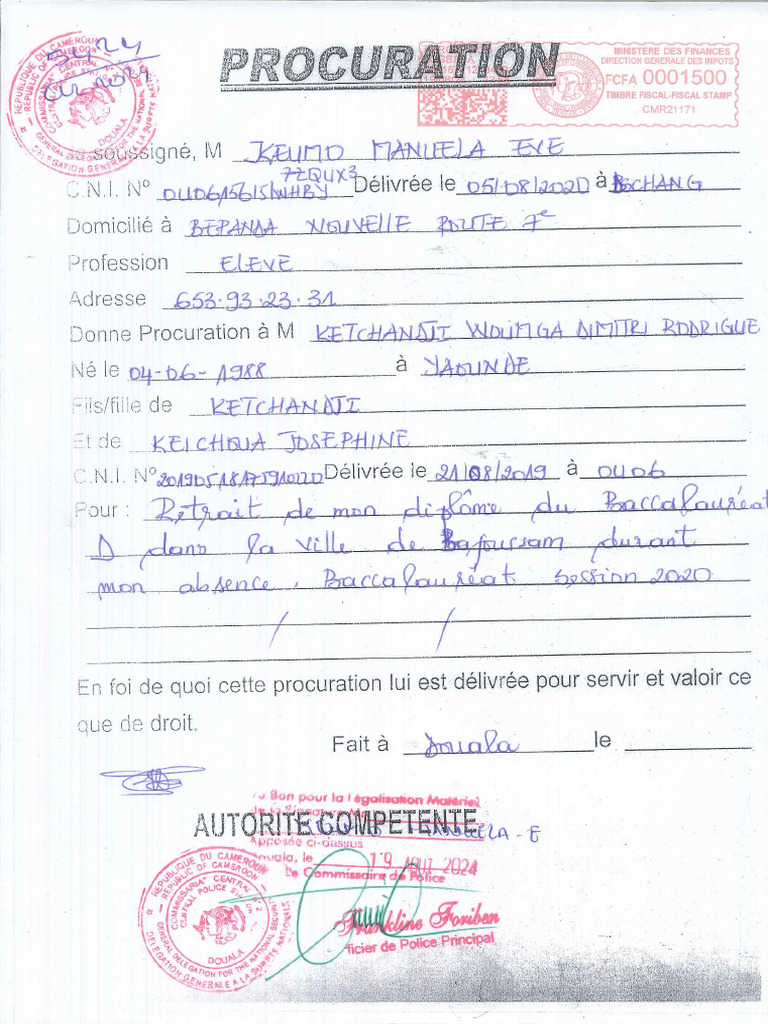 PROCURATION
MINISTERE DES FINANCES
DIRECTION GENERALE DES IMPOTS
FCFA 0001500
TIMBRE FISCAL-FISCAL STAMP
CMR21171
REPUBLIQUE DU CAMEROUN
REPUBLIC OF CAMEROON
DOUALA
soussigné, M KEUMO MANUELA EVE
7ZQUX3
C.N.I. Nº Délivrée le 05/08/2020 à DSCHANG
Domicilié à BEPANDA NOUVELLE ROUTE 7e
Profession ELEVE
Adresse 653.93.23.31
Donne Procuration à M KETCHANDJI WOUMGA DIMITRI RODRIGUE
Né le 04-06-1988 à YAOUNDE
Fils/fille de KETCHANDJI
Et de KEICHOUA JOSEPHINE
C.N.I. Nº Délivrée le 21/08/2019 à OU06
Pour : Retrait de mon diplôme du Baccalauréat
D dans la ville de Bafoussam durant
mon absence. Baccalauréat session 2020
/ /
En foi de quoi cette procuration lui est délivrée pour servir et valoir ce
que de droit.
Fait à Douala le
Bon pour la légalisation Matériel
AUTORITE COMPETENTE
Apposée ci-dessus
Douala, le 19 AOUT 2024
Le Commissaire de Police
REPUBLIQUE DU CAMEROUN
REPUBLIC OF CAMEROON
COMMISSARIAT CENTRAL N°2
DOUALA
GENERAL DELEGATION FOR THE NATIONAL SECURITY
DELEGATION GENERALE A LA SURETE NATIONALE
Frankline Foriben
ficier de Police Principal